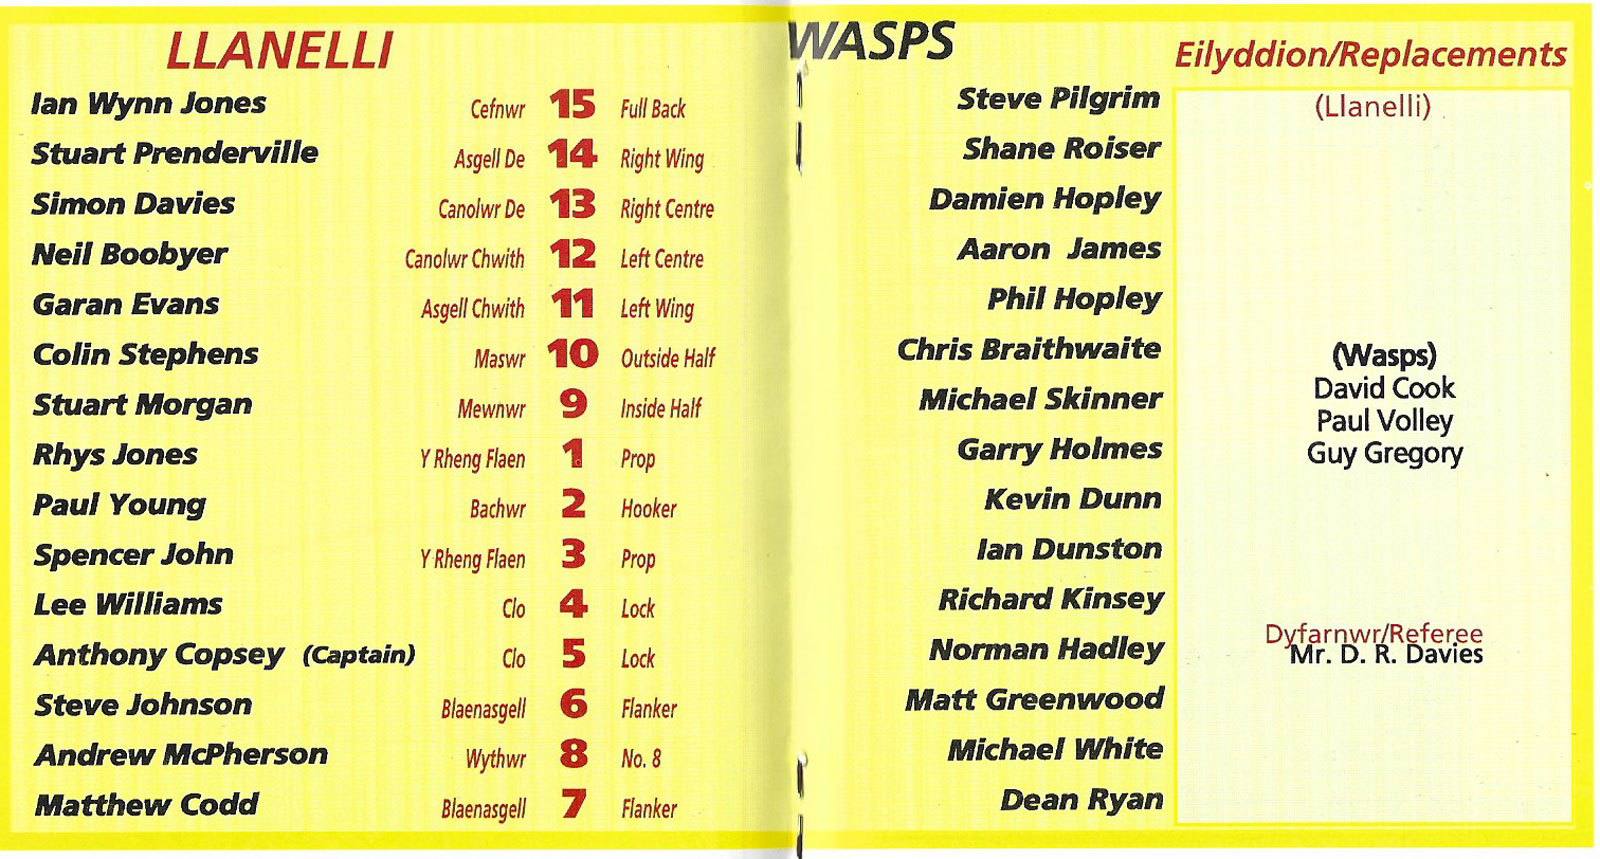 LLANELLI
Ian Wynn Jones Cefnwr 15 Full Back
Stuart Prenderville Asgell De 14 Right Wing
Simon Davies Canolwr De 13 Right Centre
Neil Boobyer Canolwr Chwith 12 Left Centre
Garan Evans Asgell Chwith 11 Left Wing
Colin Stephens Maswr 10 Outside Half
Stuart Morgan Mewnwr 9 Inside Half
Rhys Jones Y Rheng Flaen 1 Prop
Paul Young Bachwr 2 Hooker
Spencer John Y Rheng Flaen 3 Prop
Lee Williams Clo 4 Lock
Anthony Copsey (Captain) Clo 5 Lock
Steve Johnson Blaenasgell 6 Flanker
Andrew McPherson Wythwr 8 No. 8
Matthew Codd Blaenasgell 7 Flanker
WASPS
Steve Pilgrim
Shane Roiser
Damien Hopley
Aaron James
Phil Hopley
Chris Braithwaite
Michael Skinner
Garry Holmes
Kevin Dunn
Ian Dunston
Richard Kinsey
Norman Hadley
Matt Greenwood
Michael White
Dean Ryan
Eilyddion/Replacements
(Llanelli)
(Wasps)
David Cook
Paul Volley
Guy Gregory
Dyfarnwr/Referee
Mr. D. R. Davies